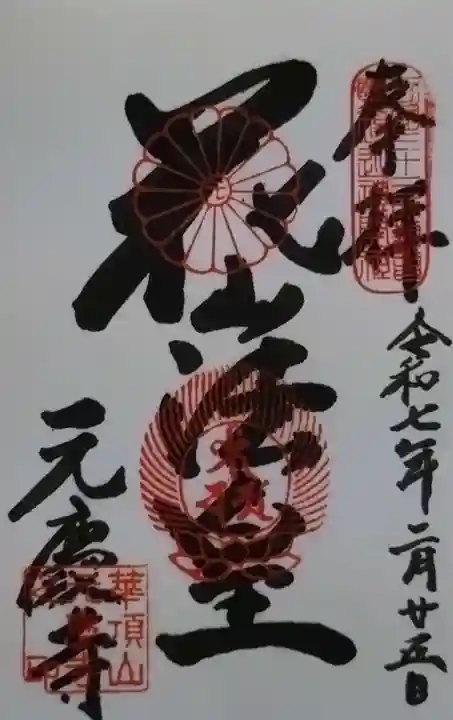 奉拝
令和七年二月廿五日
花山法皇
元慶寺
華頂山